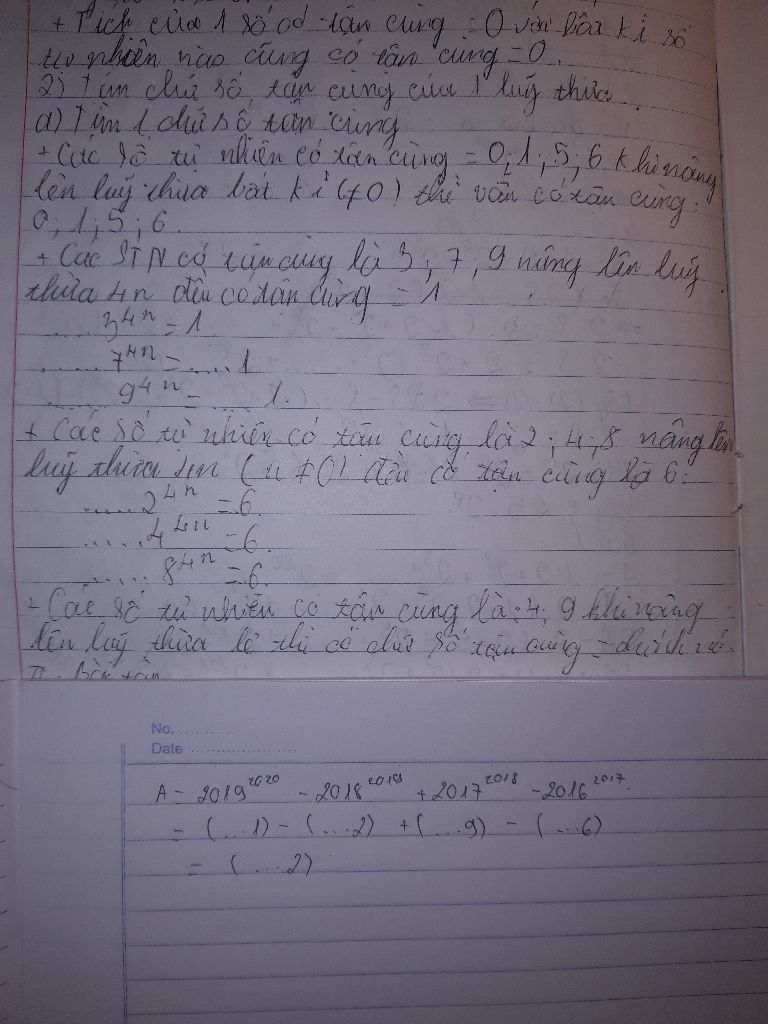 + Tích của 1 số có tận cùng = 0 với bất kì số
tự nhiên nào cũng có tận cùng = 0.
2) Tìm chữ số tận cùng của 1 luỹ thừa
a) Tìm 1 chữ số tận cùng
+ Các số tự nhiên có tận cùng = 0; 1; 5; 6 khi nâng
lên luỹ thừa bất kì (≠0) thì vẫn có tận cùng:
0; 1; 5; 6.
+ Các STN có tận cùng là 3; 7; 9 nâng lên luỹ
thừa 4n đều có tận cùng = 1
.....3⁴ⁿ = 1
......7⁴ⁿ = .....1
...... 9⁴ⁿ = ... 1.
+ Các số tự nhiên có tận cùng là 2; 4; 8 nâng lên
luỹ thừa 4n (n ≠ 0) đều có tận cùng là 6:
.....2⁴ⁿ = 6.
.....4⁴ⁿ = 6.
..... 8⁴ⁿ = 6.
- Các số tự nhiên có tận cùng là: 4; 9 khi nâng
lên luỹ thừa lẻ thì có chữ số tận cùng =
II. Bài tập
No. ..........
Date ...................
A = 2019²⁰²⁰ - 2018²⁰¹⁹ + 2017²⁰¹⁸ - 2016²⁰¹⁷.
= (...1) - (...2) + (...9) - (...6)
= (...2)